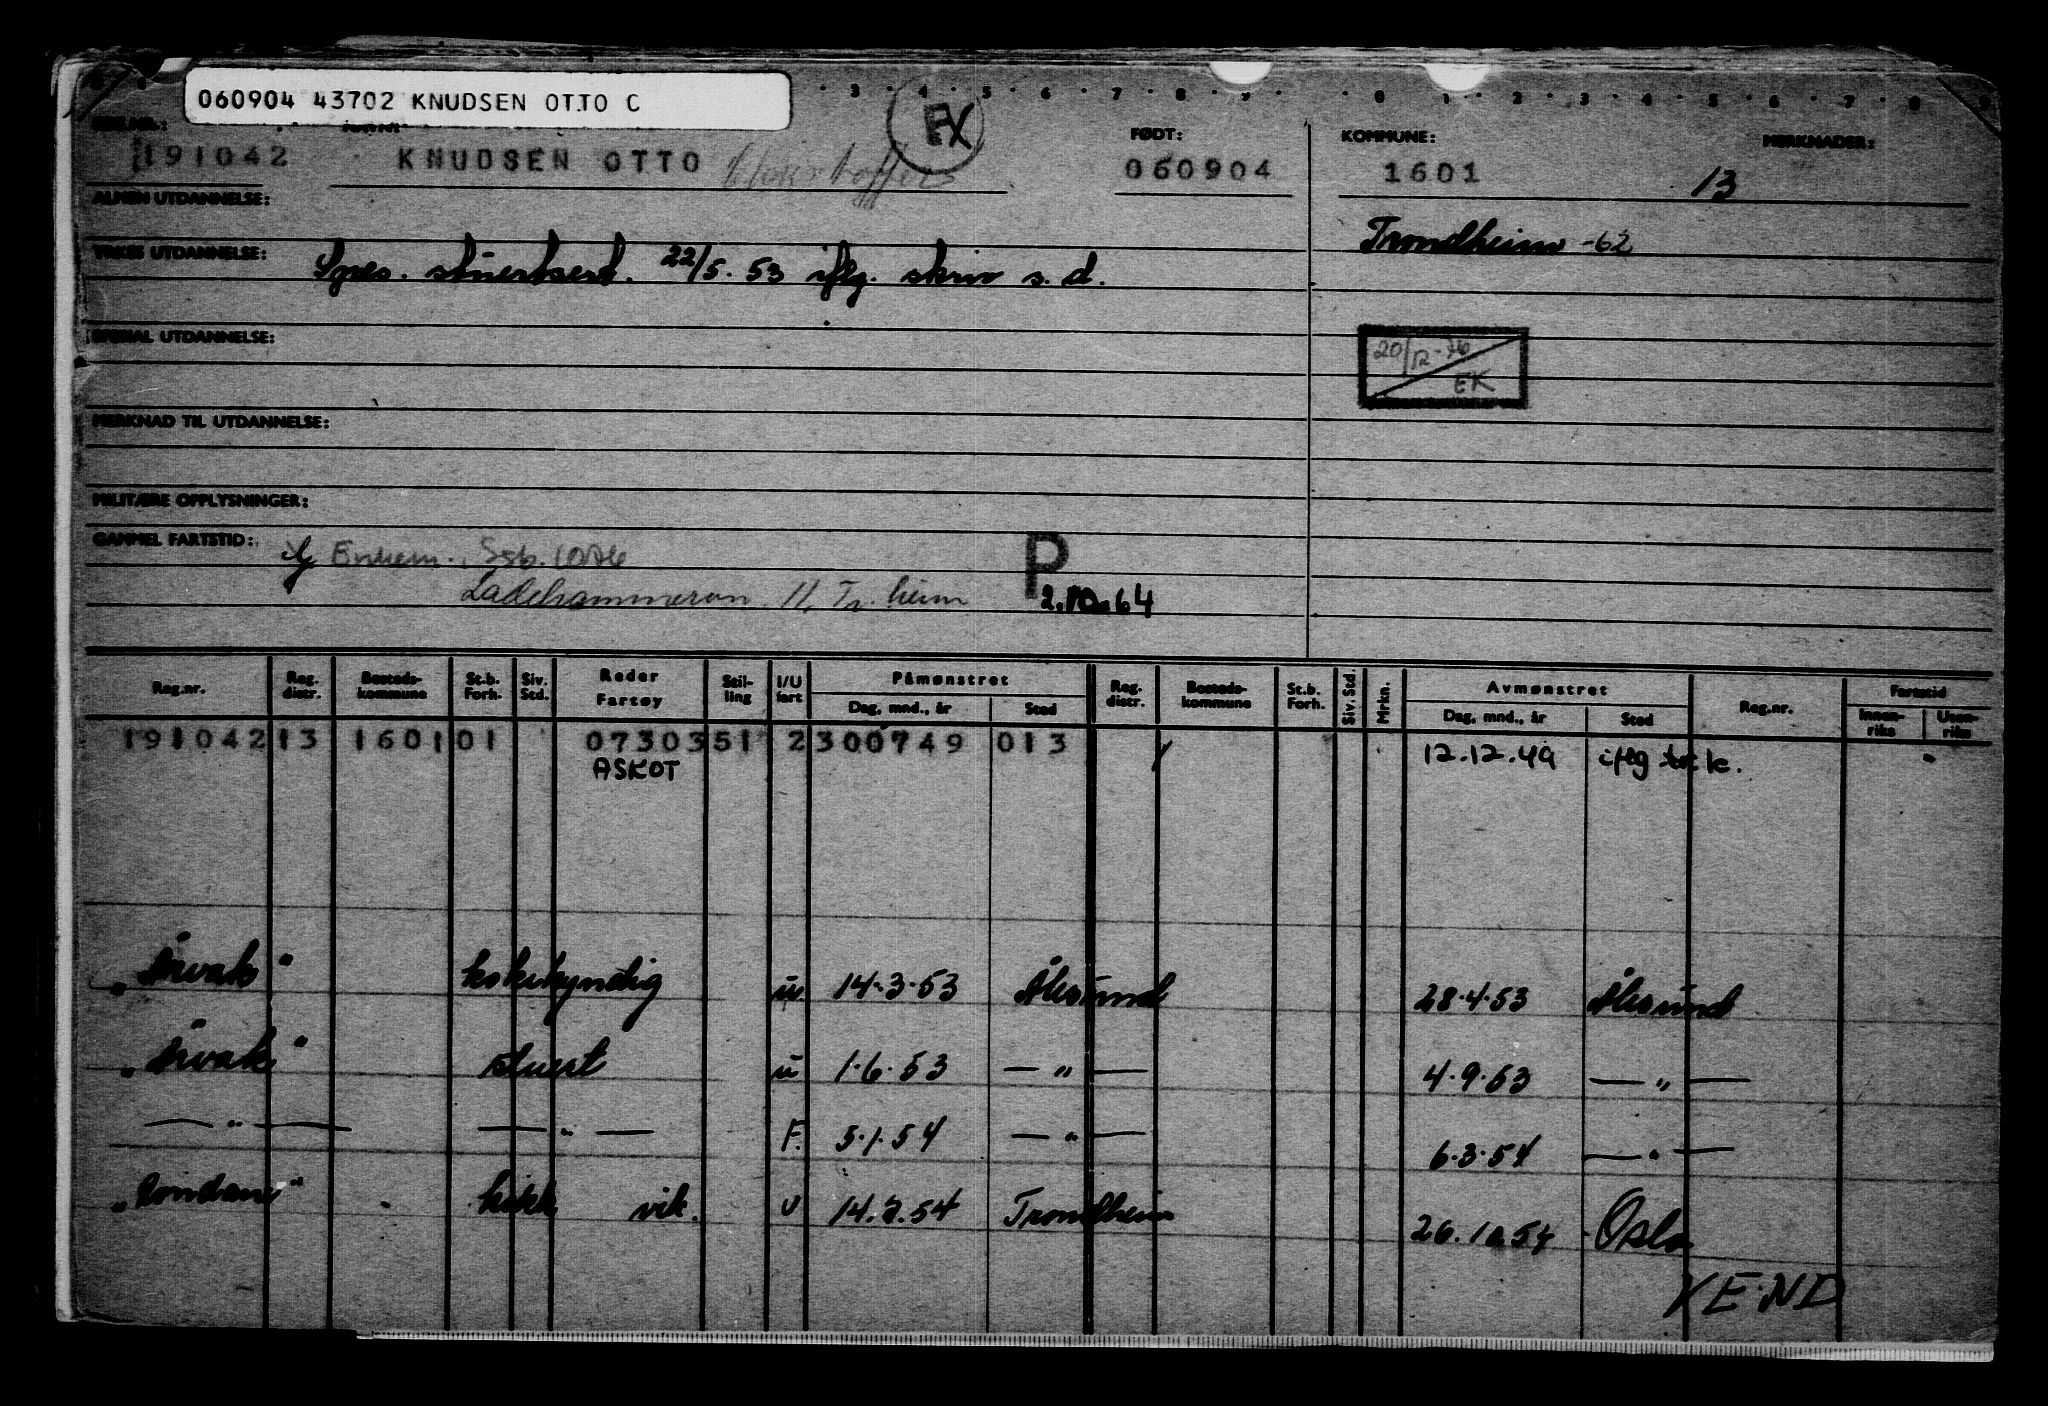 060904 43702 KNUDSEN OTTO C
3 4 5 6 7 8 9 0 1 2 3 4 5 6 7 8 9
EX
REG.NR.: NAVN: FØDT: KOMMUNE: MERKNADER:
191042 KNUDSEN OTTO 060904 1601 13
ALMEN UTDANNELSE:
Trondheim -62
YRKES UTDANNELSE: Spes. stuertsert. 22/5. 53 iflg. skriv s. d.
SPESIAL UTDANNELSE:
20/12-76
EK
MERKNAD TIL UTDANNELSE:
MILITÆRE OPPLYSNINGER:
GAMMEL FARTSTID:
Ladehammeren 11, Tr.heim
P
2.10.64
Reg.nr. Reg. distr. Bosteds-kommune St.b. Forh. Siv. Std. Reder Fartøy Stil-ling I/U fart Påmønstret Dag, mnd., år Sted Reg. distr. Bosteds-kommune St.b. Forh. Siv. Std. Mrkn. Avmønstret Dag, mnd., år Sted Reg.nr. Fartstid Innen-riks Uten-riks
191042 13 1601 01 07303 51 2 300749 013 12.12.49 iflg
ASKOT
kokkyndig u 14.3.53 Ålesund 28.4.53 Ålesund
stuert u 1.6.53 — " — 4.9.53 — " —
— " — — " — F. 5.1.54 — " — 6.3.54 — " —
"Rondane" kokk vik. U 14.7.54 Trondheim 26.10.54 Oslo
VEND